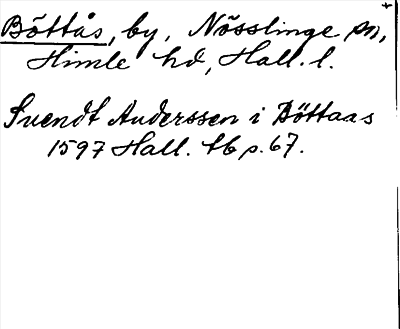 Böttås, by, Nösslinge sn,
Himle hd, Hall. l.
Svendt Anderssen i Böttaas
1597 Hall. tb p. 67.